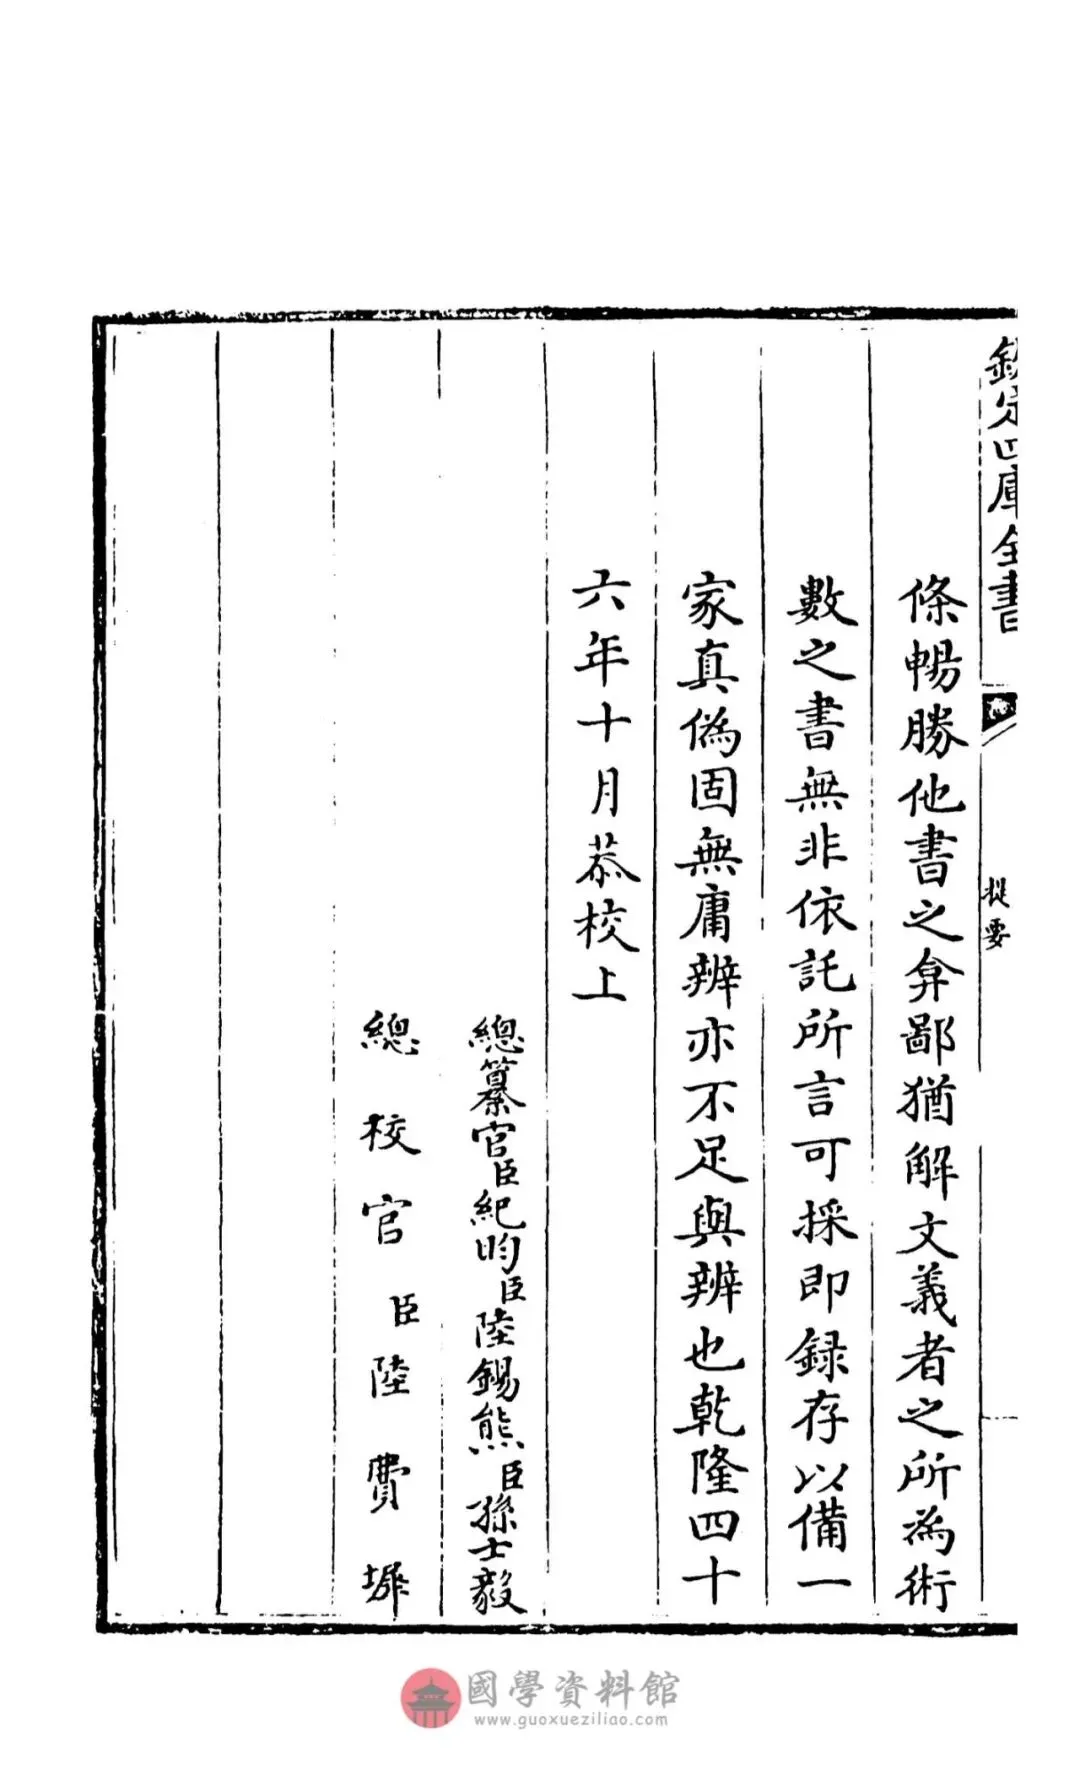 欽定四庫全書
提要
條暢勝他書之弇鄙猶解文義者之所為術
數之書無非依託所言可採即録存以備一
家真偽固無庸辨亦不足與辨也乾隆四十
六年十月恭校上
總纂官臣紀昀臣陸錫熊臣孫士毅
總校官臣陸費墀
國學資料館
www.guoxueziliao.com